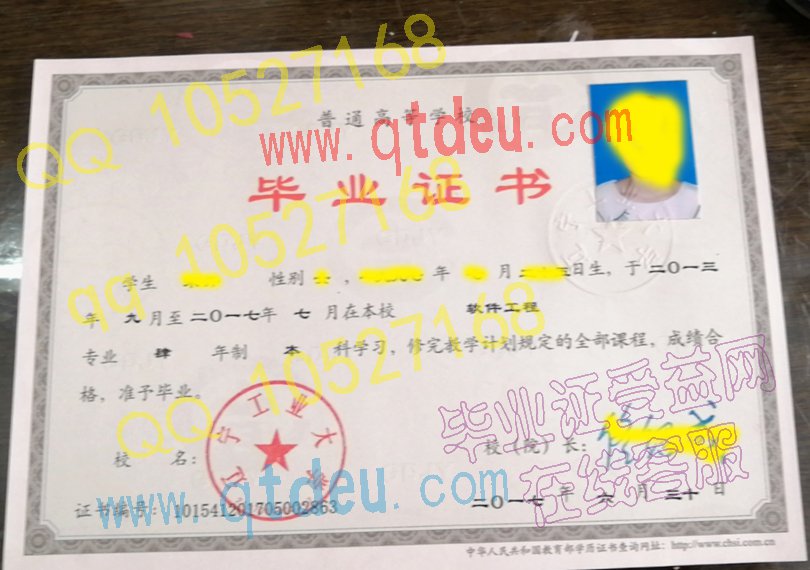 QQ 10527168
www.qtdeu.com
普通高等学校
毕业证书
qq 10527168
学生 性别 , 年 月 日生，于二〇一三
年 九 月至 二〇一七年 七 月在本校 软件工程
专业 肆 年制 本 科学习，修完教学计划规定的全部课程，成绩合
格，准予毕业。
QQ 10527168
毕业证受益网
在线客服
辽宁工业大学
校 名：
校（院）长：
www.qtdeu.com
二〇一七 年 六 月 三十 日
证书编号：101541201705002863
中华人民共和国教育部学历证书查询网址：http://www.chsi.com.cn